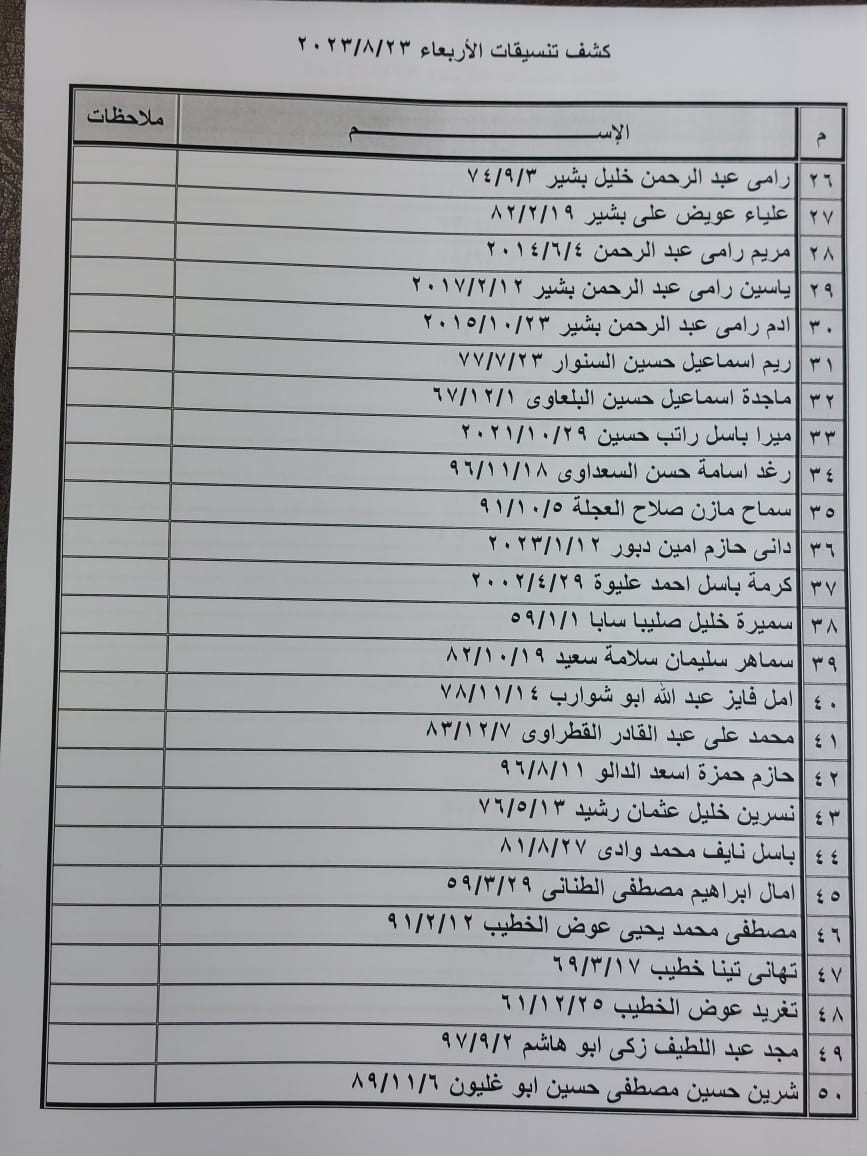 كشف تنسيقات الأربعاء ٢٠٢٣/٨/٢٣
م الإســـــــــــــم ملاحظات
٢٦ رامى عبد الرحمن خليل بشير ٧٤/٩/٣
٢٧ علياء عويض على بشير ٨٢/٢/١٩
٢٨ مريم رامى عبد الرحمن ٢٠١٤/٦/٤
٢٩ ياسين رامى عبد الرحمن بشير ٢٠١٧/٢/١٢
٣٠ ادم رامى عبد الرحمن بشير ٢٠١٥/١٠/٢٣
٣١ ريم اسماعيل حسين السنوار ٧٧/٧/٢٣
٣٢ ماجدة اسماعيل حسين البلعاوى ٦٧/١٢/١
٣٣ ميرا باسل راتب حسين ٢٠٢١/١٠/٢٩
٣٤ رغد اسامة حسن السعداوى ٩٦/١١/١٨
٣٥ سماح مازن صلاح العجلة ٩١/١٠/٥
٣٦ دانى حازم امين دبور ٢٠٢٣/١/١٢
٣٧ كرمة باسل احمد عليوة ٢٠٠٢/٤/٢٩
٣٨ سميرة خليل صليبا سابا ٥٩/١/١
٣٩ سماهر سليمان سلامة سعيد ٨٢/١٠/١٩
٤٠ امل فايز عبد الله ابو شوارب ٧٨/١١/١٤
٤١ محمد على عبد القادر القطراوى ٨٣/١٢/٧
٤٢ حازم حمزة اسعد الدالو ٩٦/٨/١١
٤٣ نسرين خليل عثمان رشيد ٧٦/٥/١٣
٤٤ باسل نايف محمد وادى ٨١/٨/٢٧
٤٥ امال ابراهيم مصطفى الطنانى ٥٩/٣/٢٩
٤٦ مصطفى محمد يحيى عوض الخطيب ٩١/٢/١٢
٤٧ تهانى تينا خطيب ٦٩/٣/١٧
٤٨ تغريد عوض الخطيب ٦١/١٢/٢٥
٤٩ مجد عبد اللطيف زكى ابو هاشم ٩٧/٩/٢
٥٠ شرين حسين مصطفى حسين ابو غليون ٨٩/١١/٦